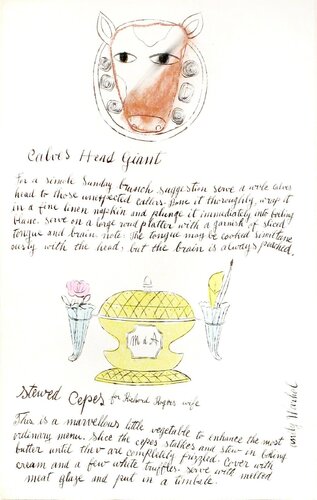 Calves Head Giant
For a simple Sunday brunch suggestion serve a whole calves
head to those unexpected callers. Bone it thoroughly, wrap it
in a fine linen napkin and plunge it immediately into boiling
blanc. Serve on a large round platter with a garnish of sliced
tongue and brain. note: The tongue may be cooked simultane
ously with the head, but the brain is always poached.
M d A
Stewed Cepes for Richard Rogers wife
This is a marvellous little vegetable to enhance the most
ordinary menu. Slice the cepes stalkes and stew in boiling
butter until they are completely frizzled. Cover with
cream and a few white truffles. serve with melted
meat glaze and put in a timbale.
Andy Warhol